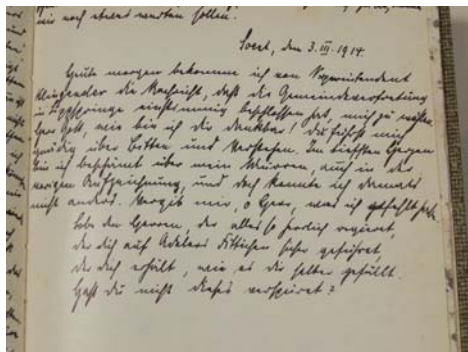 mir noch etwas werden sollen.
Soest, den 3. III. 1914.
Heute morgen bekomme ich von Superintendent
Klingender die Nachricht, daß die Gemeindevertretung
in Lippspringe einstimmig beschlossen hat, mich zu wählen.
Herr Gott, wie bin ich dir dankbar! Du führst mich
gnädig über Bitten und Verstehen. Im tiefsten Herzen
bin ich beschämt über mein Murren, auch in der
vorigen Aufzeichnung, und doch konnte ich damals
nicht anders. Vergib mir, o Herr, was ich gefehlt hab.
Lobe den Herren, der alles so herrlich regieret,
der dich auf Adelers Fittichen sicher geführet,
der dich erhält, wie es dir selber gefällt.
Hast du nicht dieses verspüret?